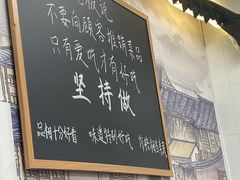 不要向顾客推销菜品
只有爱吃才有好吃
坚持做
品相十分好看 味道特别好吃